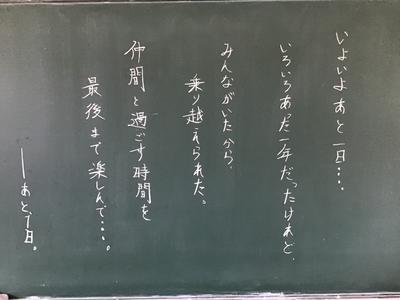 いよいよあと一日….
いろいろあった一年だったけれど、
みんながいたから、
乗り越えられた。
仲間と過ごす時間を
最後まで楽しんで….。
―あと、1日。